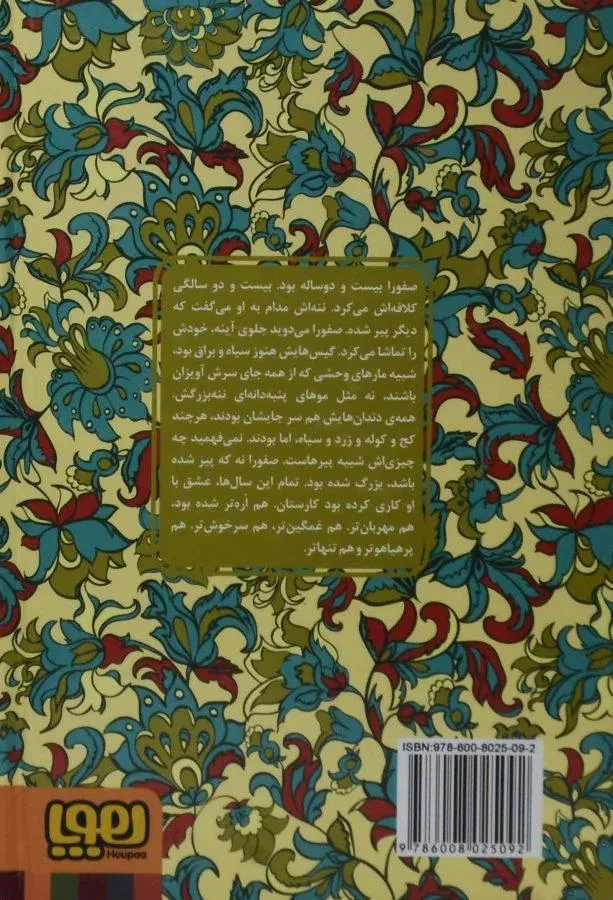 صفورا بیست و دوساله بود. بیست و دو سالگی
کلافه‌اش می‌کرد. ننه‌اش مدام به او می‌گفت که
دیگر پیر شده. صفورا می‌دوید جلوی آینه، خودش
را تماشا می‌کرد. گیس‌هایش هنوز سیاه و براق بود،
شبیه مارهای وحشی که از همه جای سرش آویزان
باشند، نه مثل موهای پنبه‌دانه‌ای ننه‌بزرگش.
همه‌ی دندان‌هایش هم سر جایشان بودند، هرچند
کج و کوله و زرد و سیاه، اما بودند. نمی‌فهمید چه
چیزی‌اش شبیه پیرهاست. صفورا نه که پیر شده
باشد، بزرگ شده بود. تمام این سال‌ها، عشق با
او کاری کرده بود کارستان. هم اُره‌تر شده بود،
هم مهربان‌تر. هم غمگین‌تر، هم سرخوش‌تر. هم
پرهیاهوتر و هم تنهاتر.
ISBN:978-600-8025-09-2
9786008025092
هوپا
Houpaa